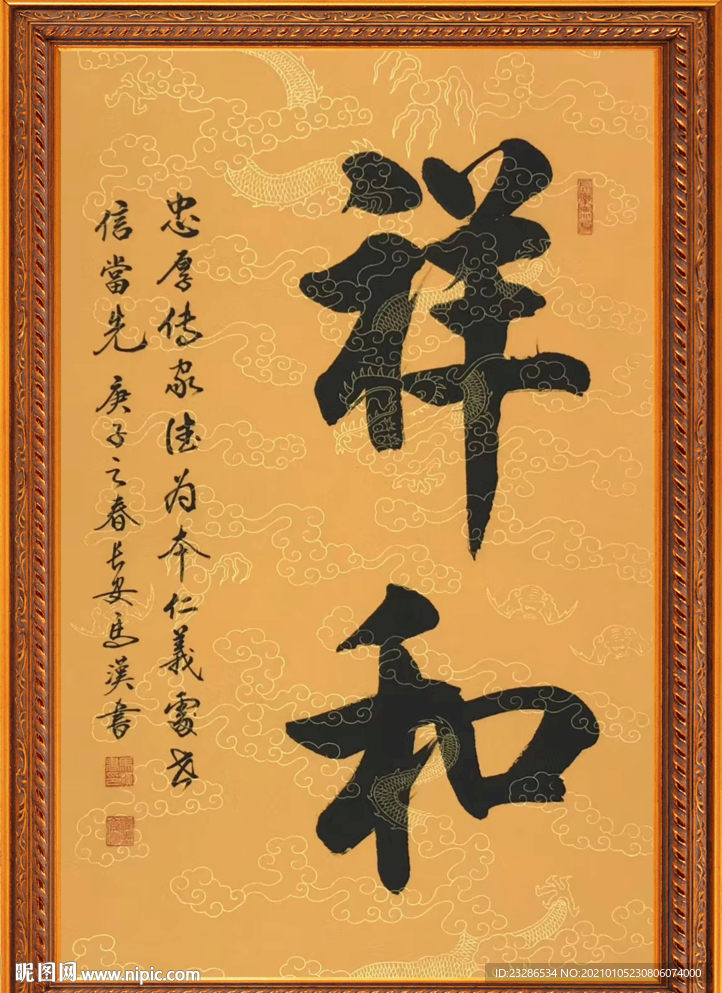 祥和
忠厚传家德为本仁義處世
信當先 庚子之春長安馬漢書
昵图网 www.nipic.com
ID:23286534 NO:20210105230806074000